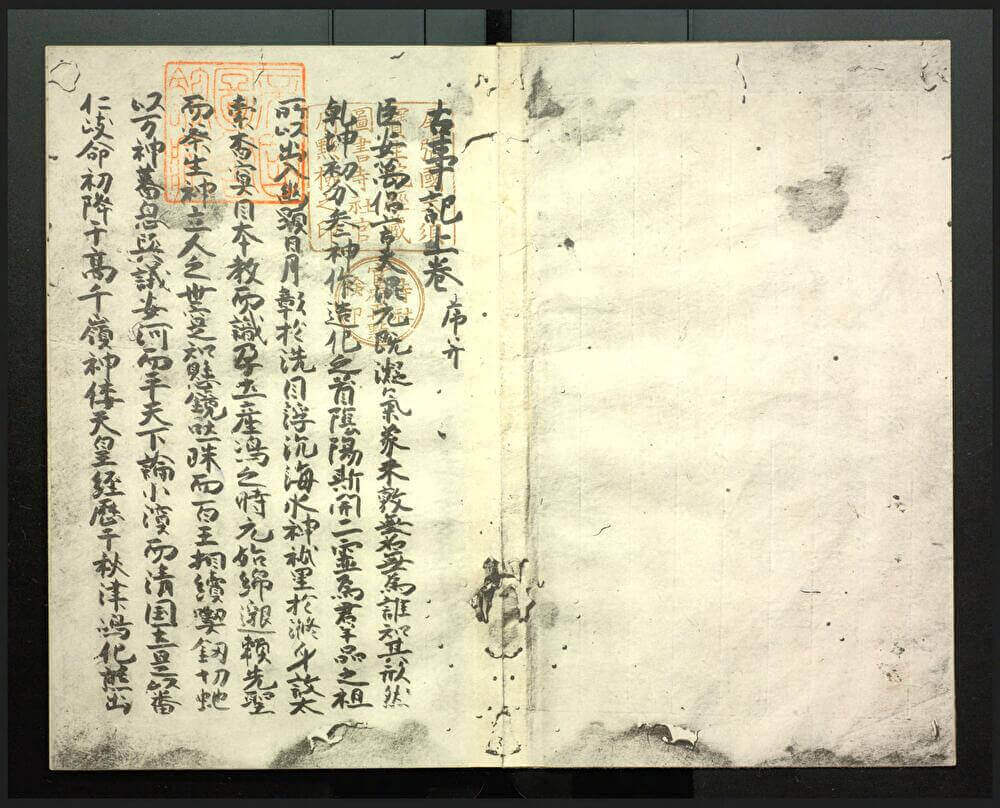 古事記上卷 序并
臣安萬侶言夫混元既凝氣象未敦無名無爲誰知其形然
乾坤初分參神作造化之首陰陽斯開二靈爲群品之祖
所以出入幽顯日月彰於洗目浮沉海水神祇呈於滌身故太
素杳冥因本教而識孕土產嶋之時元始綿邈賴先聖
而察生神立人之世寔知懸鏡吐珠而百王相續喫釼切蛇
以万神蕃息與議安河而平天下論小濱而清国土是以番
仁岐命初降于高千嶺神倭天皇經歷于秋津嶋化熊出